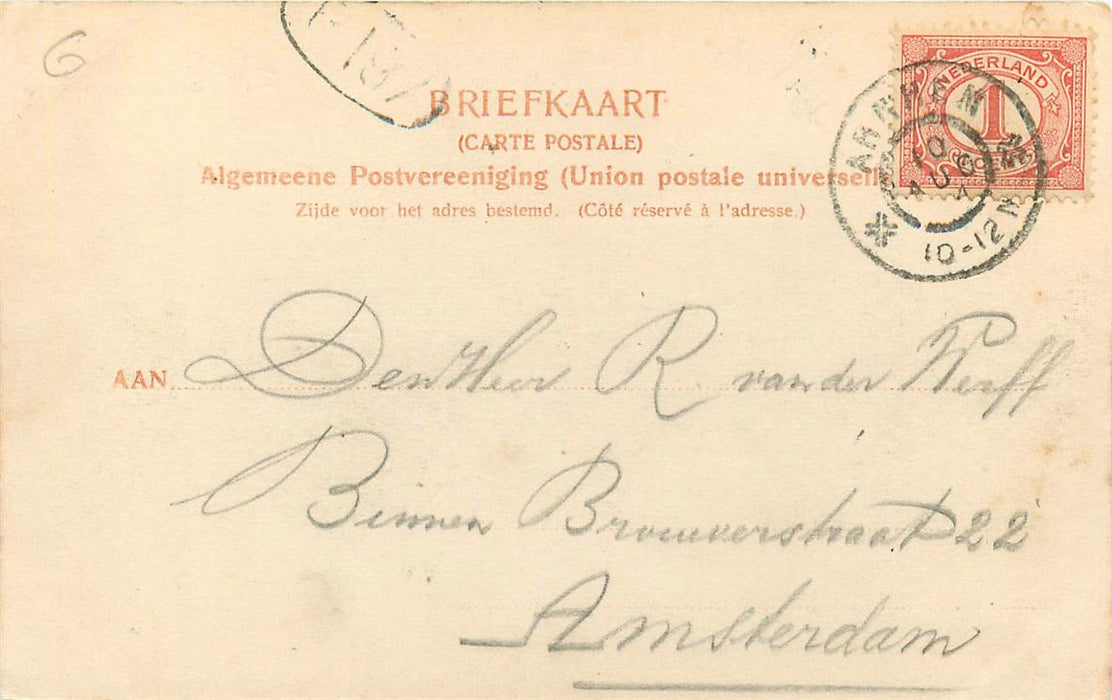 6
BRIEFKAART
(CARTE POSTALE)
Algemeene Postvereeniging (Union postale universell
Zijde voor het adres bestemd. (Côté réservé à l'adresse.)
NEDERLAND
1
CENT
ARNHEM
10
AUG
10-12
AAN Den Heer R. van der Werff
Binnen Brouwerstraat 22
Amsterdam